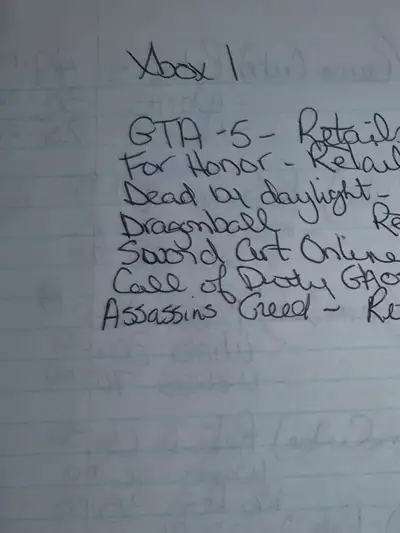 Xbox 1
GTA - 5 - Retails
For Honor - Retail
Dead by daylight -
Dragonball Re
Sword Art Online
Call of Duty
Assassins Creed - Re